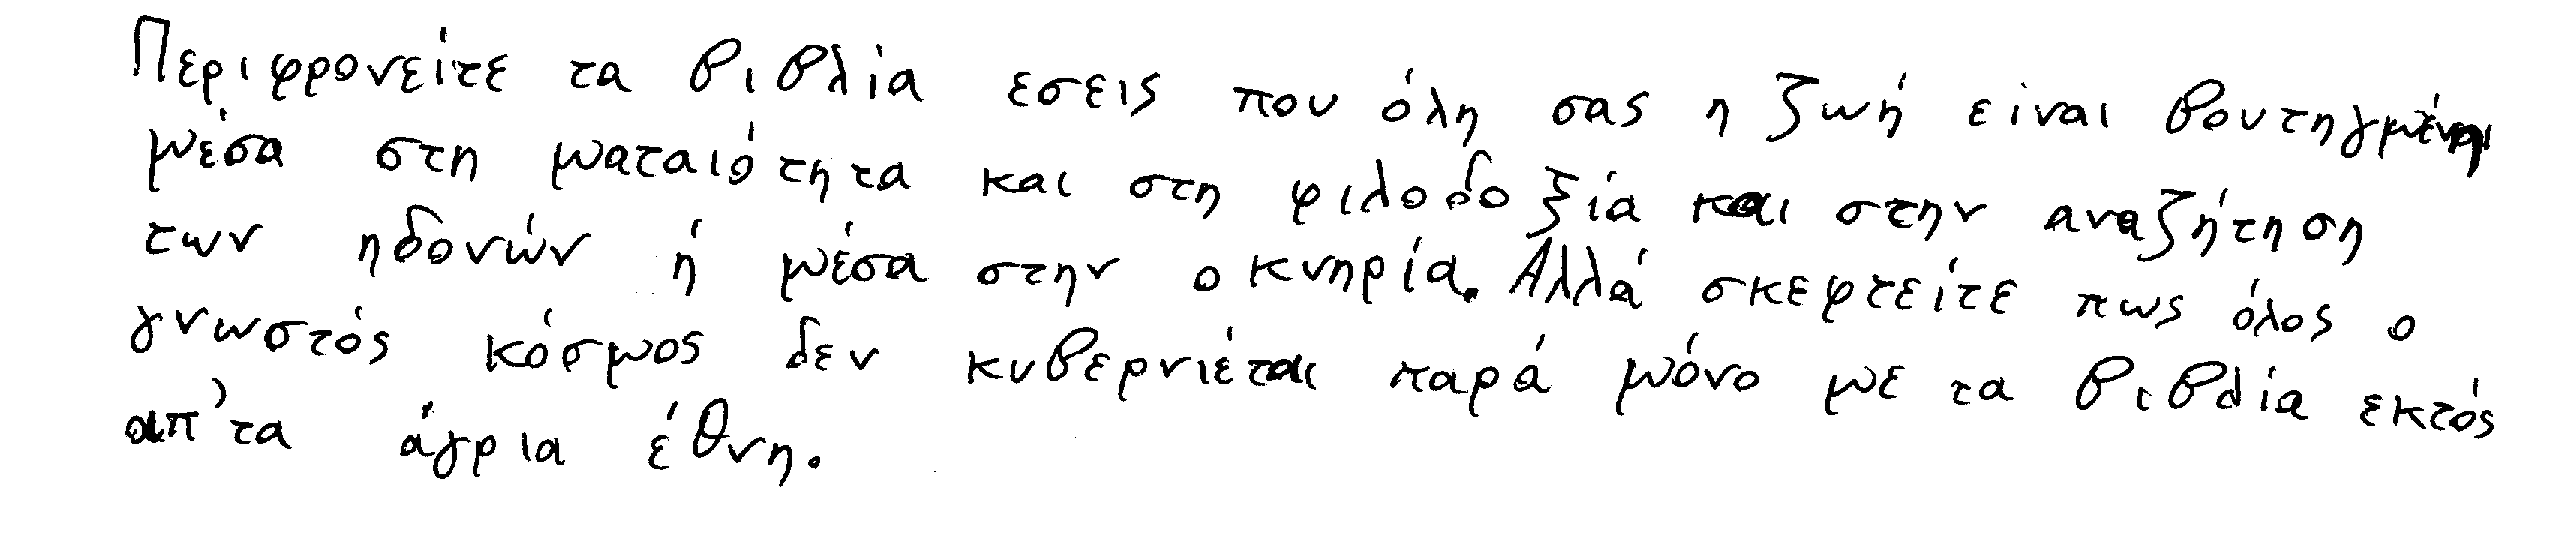 Περιφρονείτε τα βιβλία εσεις που όλη σας η ζωή είναι βουτηγμένη
μέσα στη ματαιότητα και στη φιλοδοξία και στην αναζήτηση
των ηδονών ή μέσα στην οκνηρία. Αλλά σκεφτείτε πως όλος ο
γνωστός κόσμος δεν κυβερνιέται παρά μόνο με τα βιβλία εκτός
απ' τα άγρια έθνη.